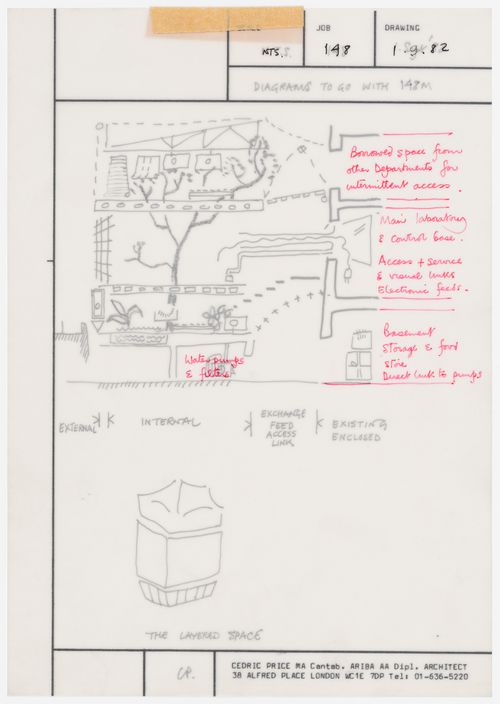 JOB
DRAWING
NTS.
148
1.9.82
DIAGRAMS TO GO WITH 148M
Borrowed space from
other Departments for
intermittent access.
Main laboratory
& control base.
Access + service
& visual links
Electronic feeds.
Basement
Storage & food
store
Direct link to pumps
Water pumps
& filters
EXTERNAL
INTERNAL
EXCHANGE
FEED
ACCESS
LINK
EXISTING
ENCLOSED
THE LAYERED SPACE
CP.
CEDRIC PRICE MA Cantab. ARIBA AA Dipl. ARCHITECT
38 ALFRED PLACE LONDON WC1E 7DP Tel: 01-636-5220